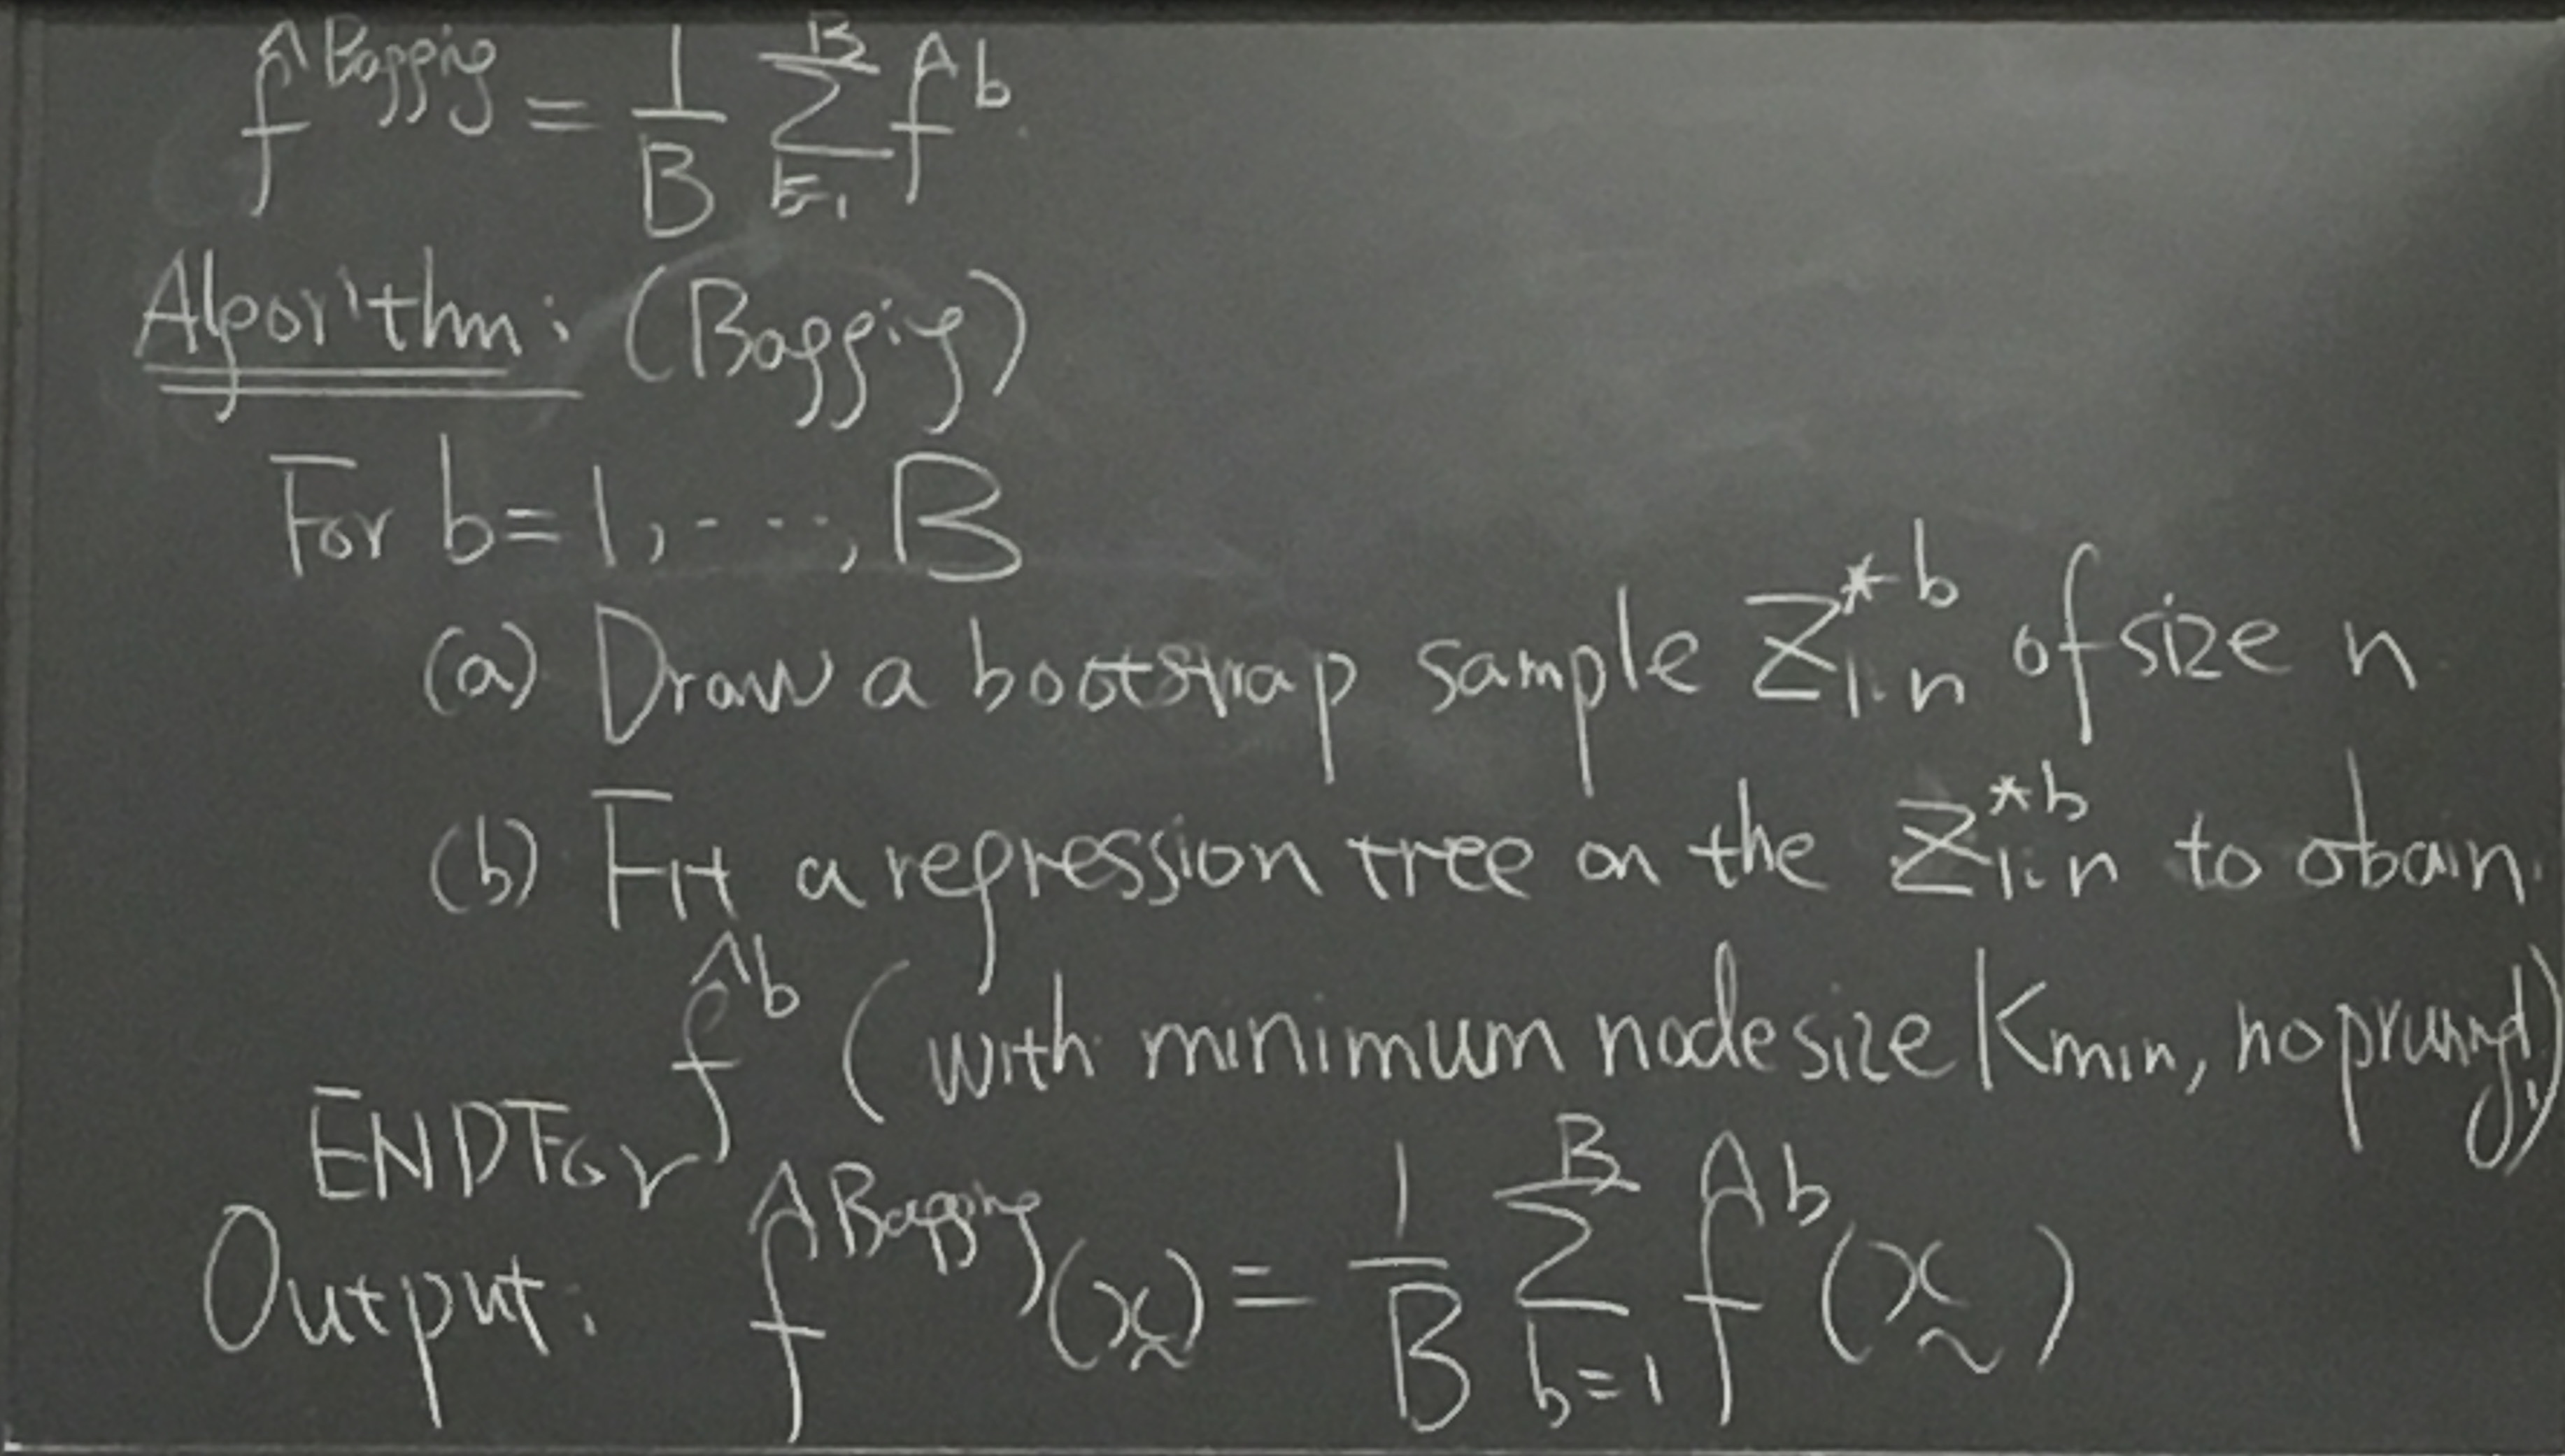 f̂^Bagging = 1/B ∑_{b=1}^{B} f̂^b.
Algorithm: (Bagging)
For b=1,...,B
(a) Draw a bootstrap sample Z_{1:n}^{*b} of size n
(b) Fit a regression tree on the Z_{1:n}^{*b} to obain.
f̂^b (with minimum node size Kmin, no pruning)
ENDFor
Output: f̂^Bagging(x̰) = 1/B ∑_{b=1}^{B} f̂^b(x̰)